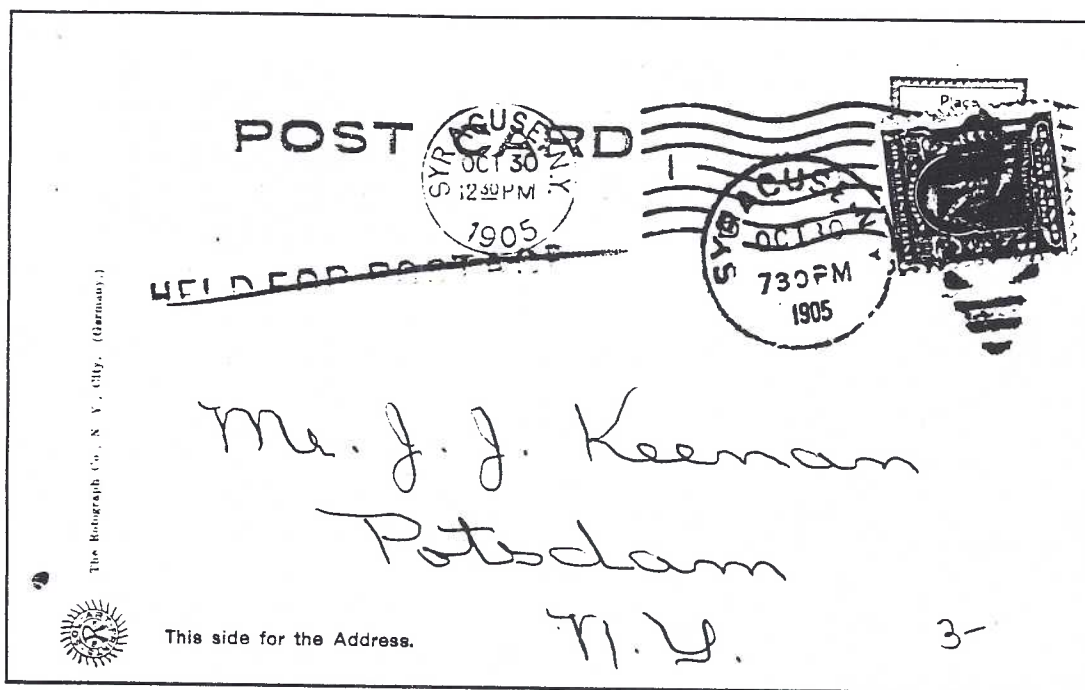 Place
POST CARD
SYRACUSE, N.Y.
OCT 30
12 30 PM
1905
1
SYRACUSE, N.
OCT 30
730 PM
1905
HELD FOR POSTAGE
The Rotograph Co., N. Y. City. (Germany.)
Mr. J. J. Keenan
Potsdam
N. Y.
3-
This side for the Address.
SOL-ART PRINTS